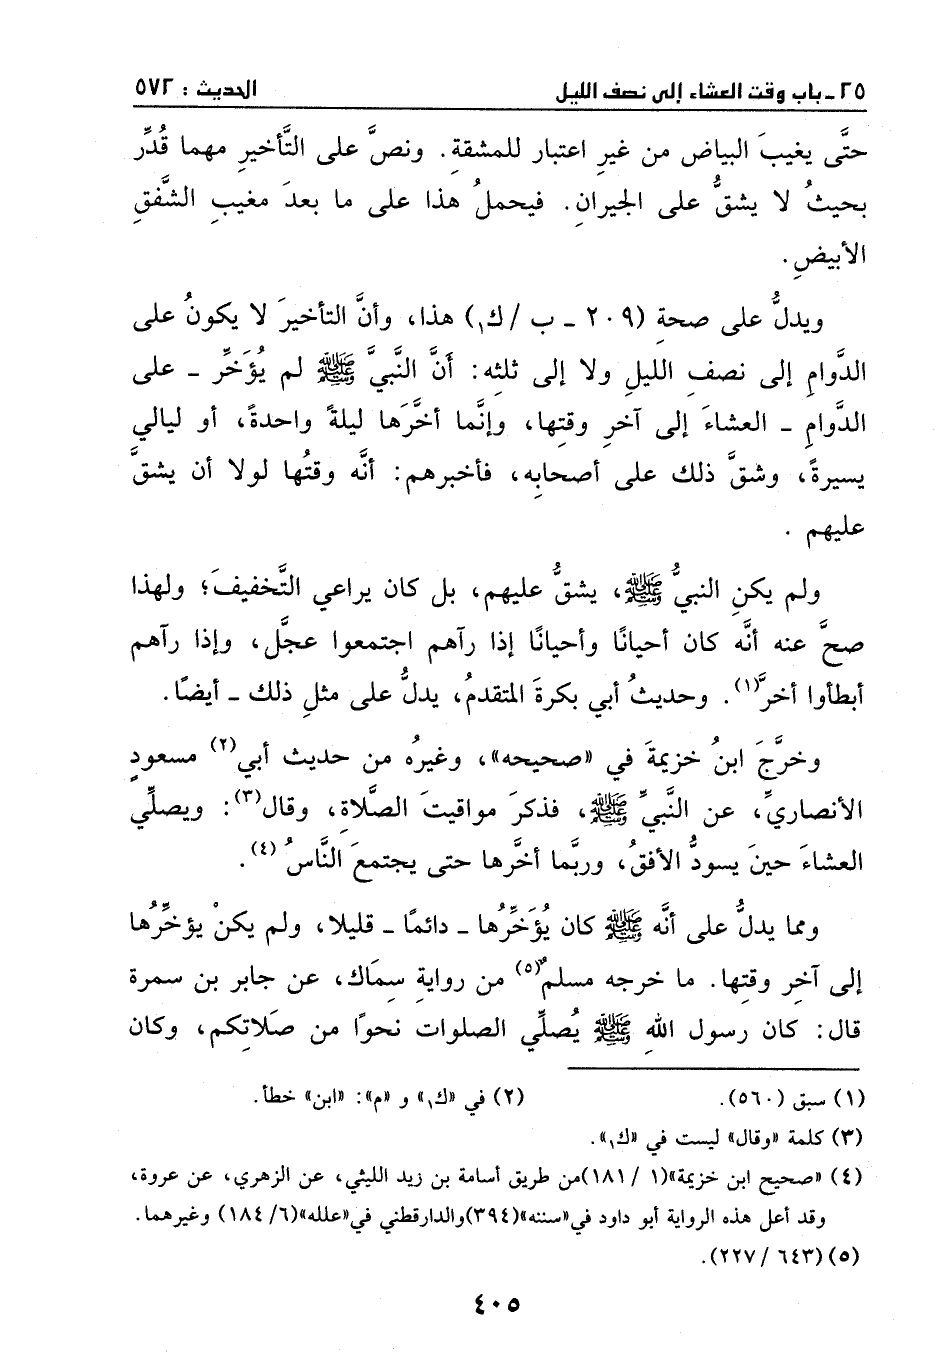 ٢٥ ـ باب وقت العشاء إلى نصف الليل الحديث : ٥٧٢
حتَّى يغيبَ البياض من غيرِ اعتبار للمشقةِ. ونصَّ على التَّأخيرِ مهما قُدِّر
بحيثُ لا يشقُّ على الجيرانِ. فيحملُ هذا على ما بعدَ مغيبِ الشَّفقِ
الأبيضِ.
ويدلُّ على صحةِ (٢٠٩ ـ ب / ك١) هذا، وأنَّ التأخيرَ لا يكونُ على
الدَّوامِ إلى نصفِ الليلِ ولا إلى ثلثِه: أنَّ النَّبيَّ ﷺ لم يُؤَخِّر ـ على
الدَّوامِ ـ العشاءَ إلى آخرِ وقتِها، وإنَّما أخَّرَها ليلةً واحدةً، أو ليالي
يسيرةً، وشقَّ ذلك على أصحابِه، فأخبرهم: أنَّه وقتُها لولا أن يشقَّ
عليهم .
ولم يكنِ النبيُّ ﷺ، يشقُّ عليهم، بل كان يراعي التَّخفيفَ؛ ولهذا
صحَّ عنه أنَّه كان أحيانًا وأحيانًا إذا رآهم اجتمعوا عجَّل، وإذا رآهم
أبطأوا أخرَّ(١). وحديثُ أبي بكرةَ المتقدمُ، يدلُّ على مثلِ ذلك ـ أيضًا.
وخرَّجَ ابنُ خزيمةَ في «صحيحه»، وغيرُه من حديث أبي(٢) مسعودٍ
الأنصاريِّ، عن النَّبيِّ ﷺ، فذكرَ مواقيتَ الصَّلاةِ، وقال(٣): ويصلِّي
العشاءَ حينَ يسودُّ الأفقُ، وربَّما أخَّرها حتى يجتمعَ النَّاسُ(٤).
ومما يدلُّ على أنَّه ﷺ كان يُؤَخِّرُها ـ دائمًا ـ قليلا، ولم يكنْ يؤخِّرُها
إلى آخرِ وقتِها. ما خرجه مسلمٌ(٥) من روايةِ سِمَاك، عن جابر بن سمرة
قال: كان رسول اللهِ ﷺ يُصلِّي الصلوات نحوًا من صَلاتِكم، وكان
(١) سبق (٥٦٠). (٢) في «ك١» و «م»: «ابن» خطأ.
(٣) كلمة «وقال» ليست في «ك١».
(٤) «صحيح ابن خزيمة»(١ / ١٨١)من طريق أسامة بن زيد الليثي، عن الزهري، عن عروة،
وقد أعل هذه الرواية أبو داود في«سننه»(٣٩٤)والدارقطني في«علله»(٦/ ١٨٤) وغيرهما.
(٥) (٦٤٣ / ٢٢٧).
٤٠٥